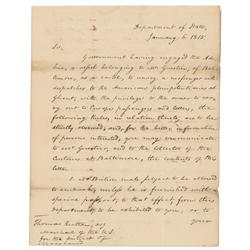 Department of State,
January 6 1815.
Sir,
Government having engaged the
a vessel belonging to Mr of Balt-
imore, as a cartel, to convey a messenger with
despatches to the American plenipotentiaries at
Ghent, with the privilege to the owner to carry
out to Europe passengers and letters, the
following rules, in relation thereto, are to be
strictly observed; and, for the better information
of persons interested, you may communicate
to Mr and to the Collector of the
Customs at Baltimore, the contents of this
letter.
No British male subject to be allowed
to embark unless he is furnished with a
special passport, to that effect from this
department, to be exhibited to you, or to
your
Thomas Rutter, esq
Marshal of the U.S.
for the district of